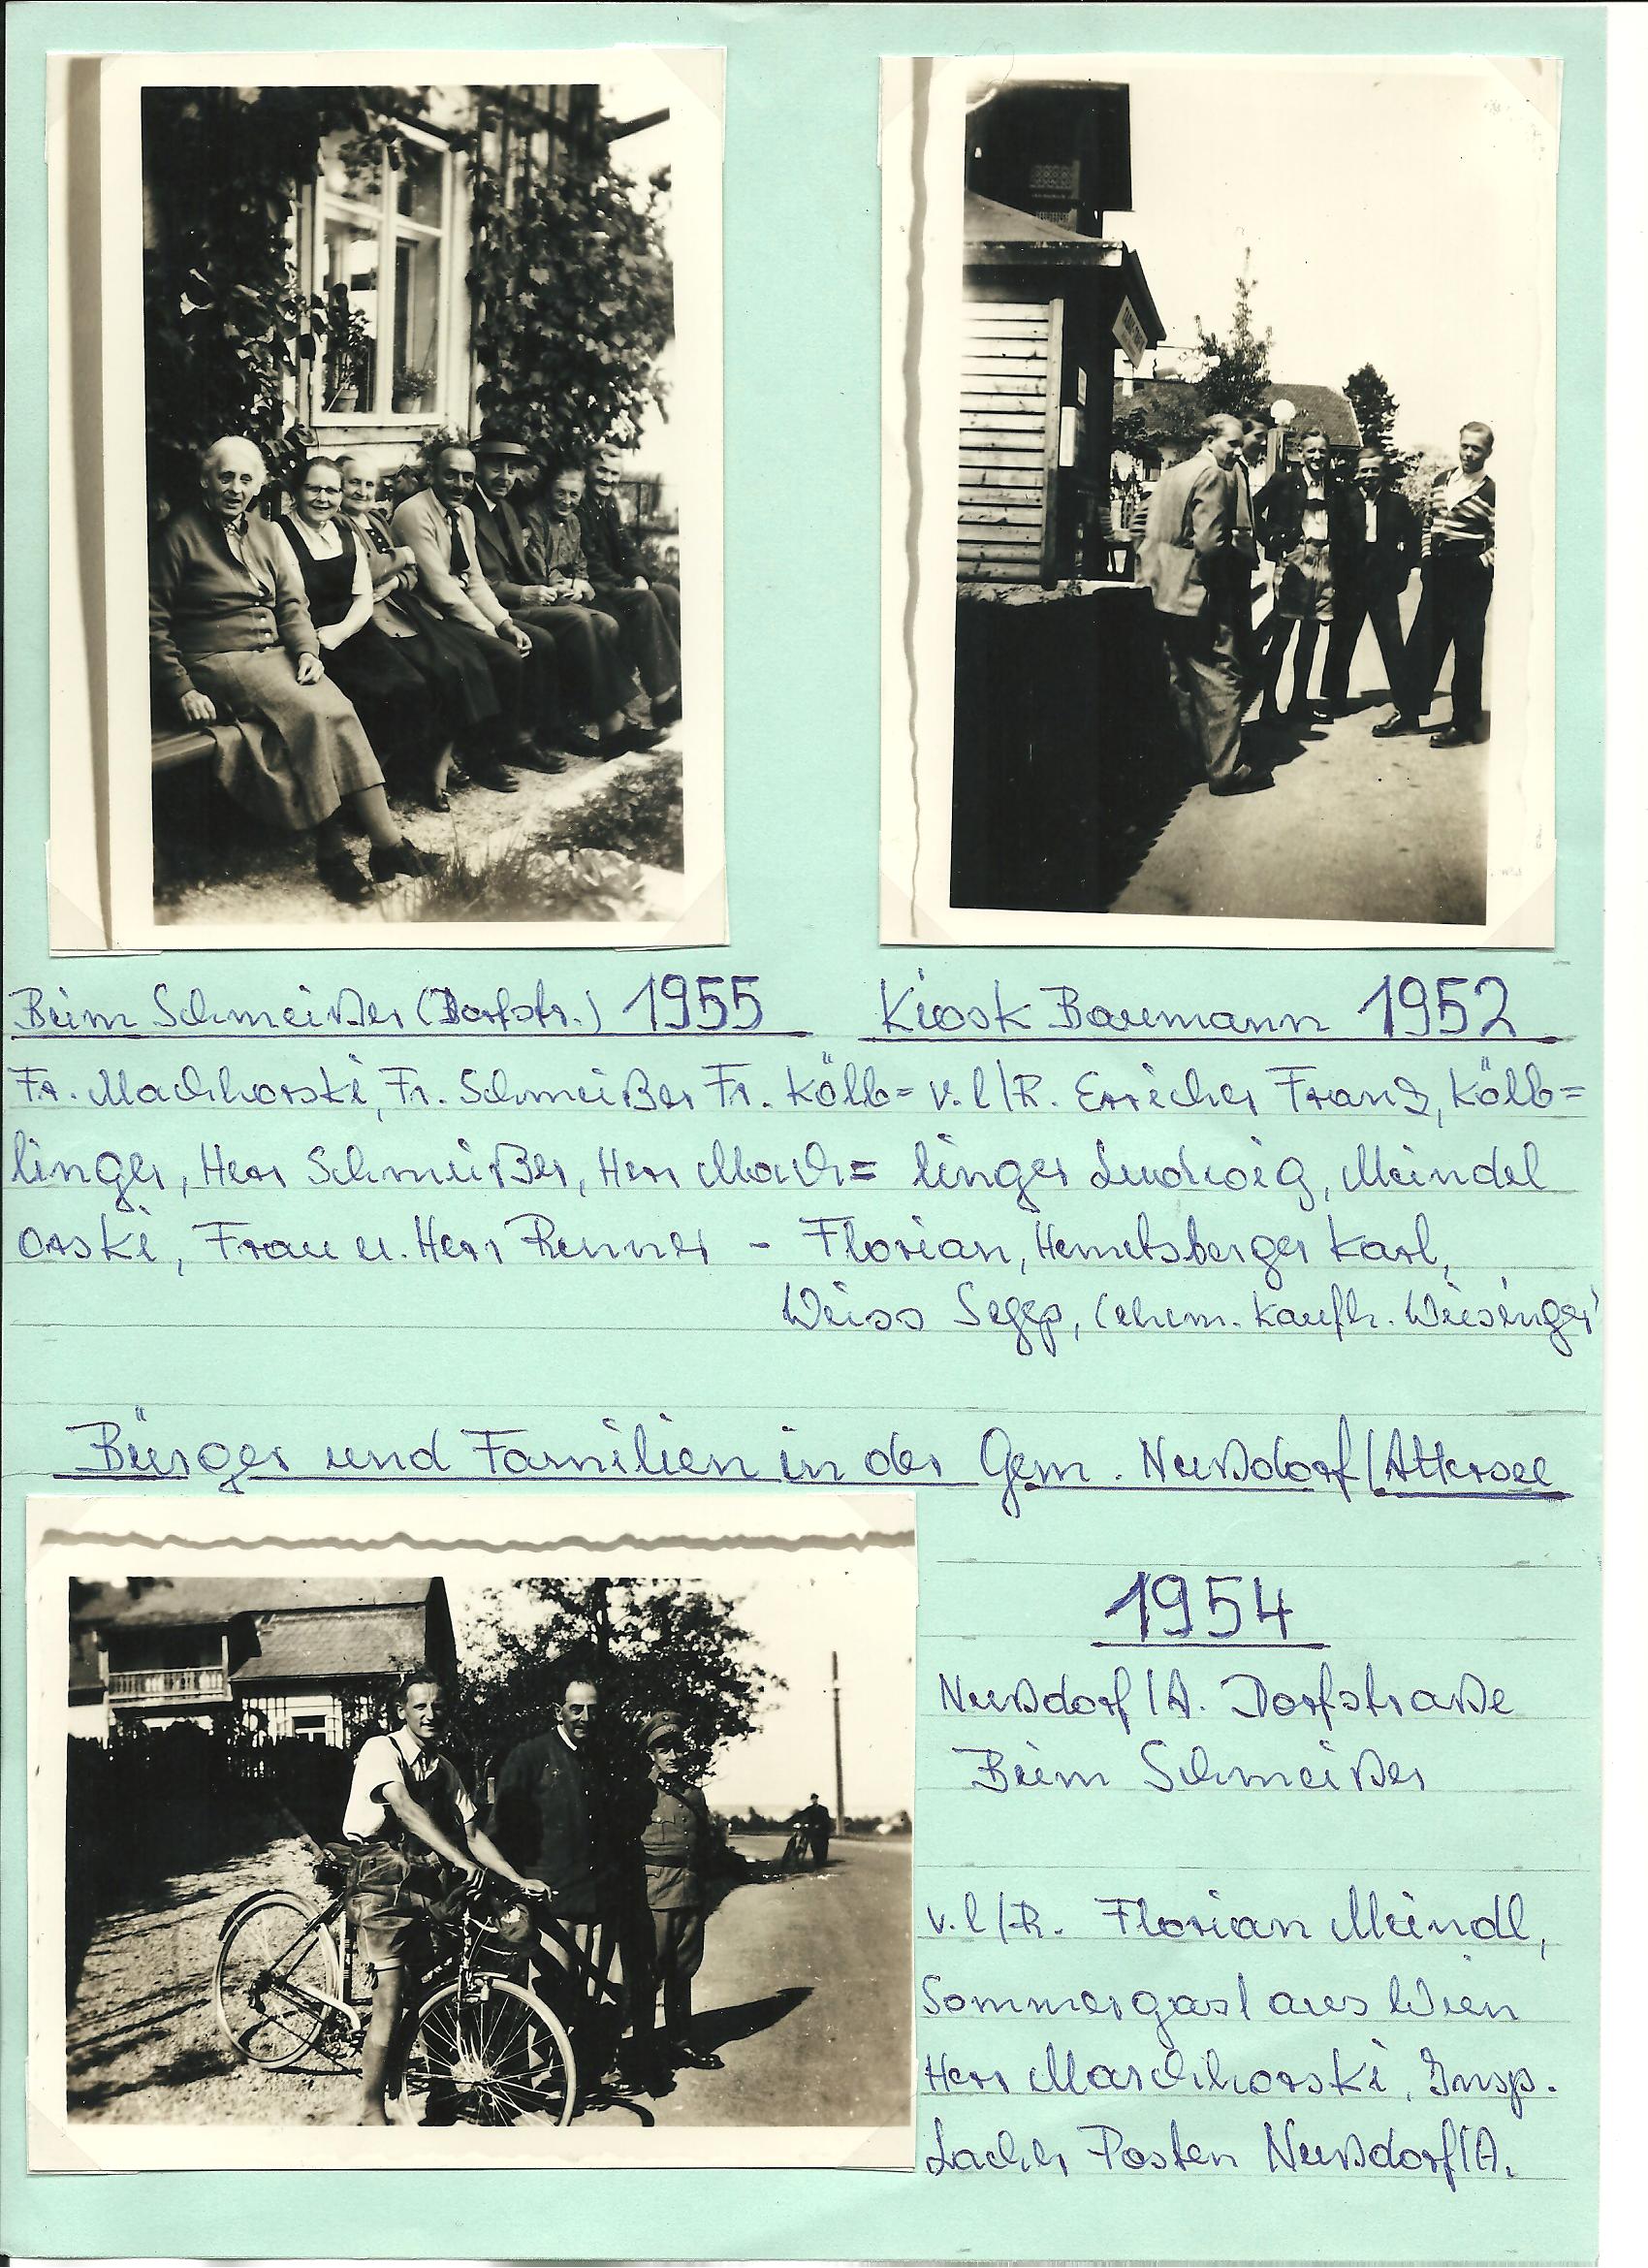 Beim Schmeißer (Dorfstr.) 1955
Fr. Machhorski, Fr. Schmeißer Fr. Kölb=
linger, Herr Schmeißer, Herr Mach=
orski, Frau u. Herr Renner -
Kiosk Baumann 1952
v. l/R. Erricher Franz, Kölb=
linger Ludwig, Meindel
Florian, Hemetsberger Karl,
Weiss Sepp, (ehem. Kaufh. Wiesinger)
Bürger und Familien in der Gem. Nußdorf/Attersee
1954
Nußdorf/A. Dorfstraße
Beim Schmeißer
v. l/R. Florian Meindl,
Sommergast aus Wien
Herr Marchhorski, Insp.
Lacher Posten Nußdorf/A.